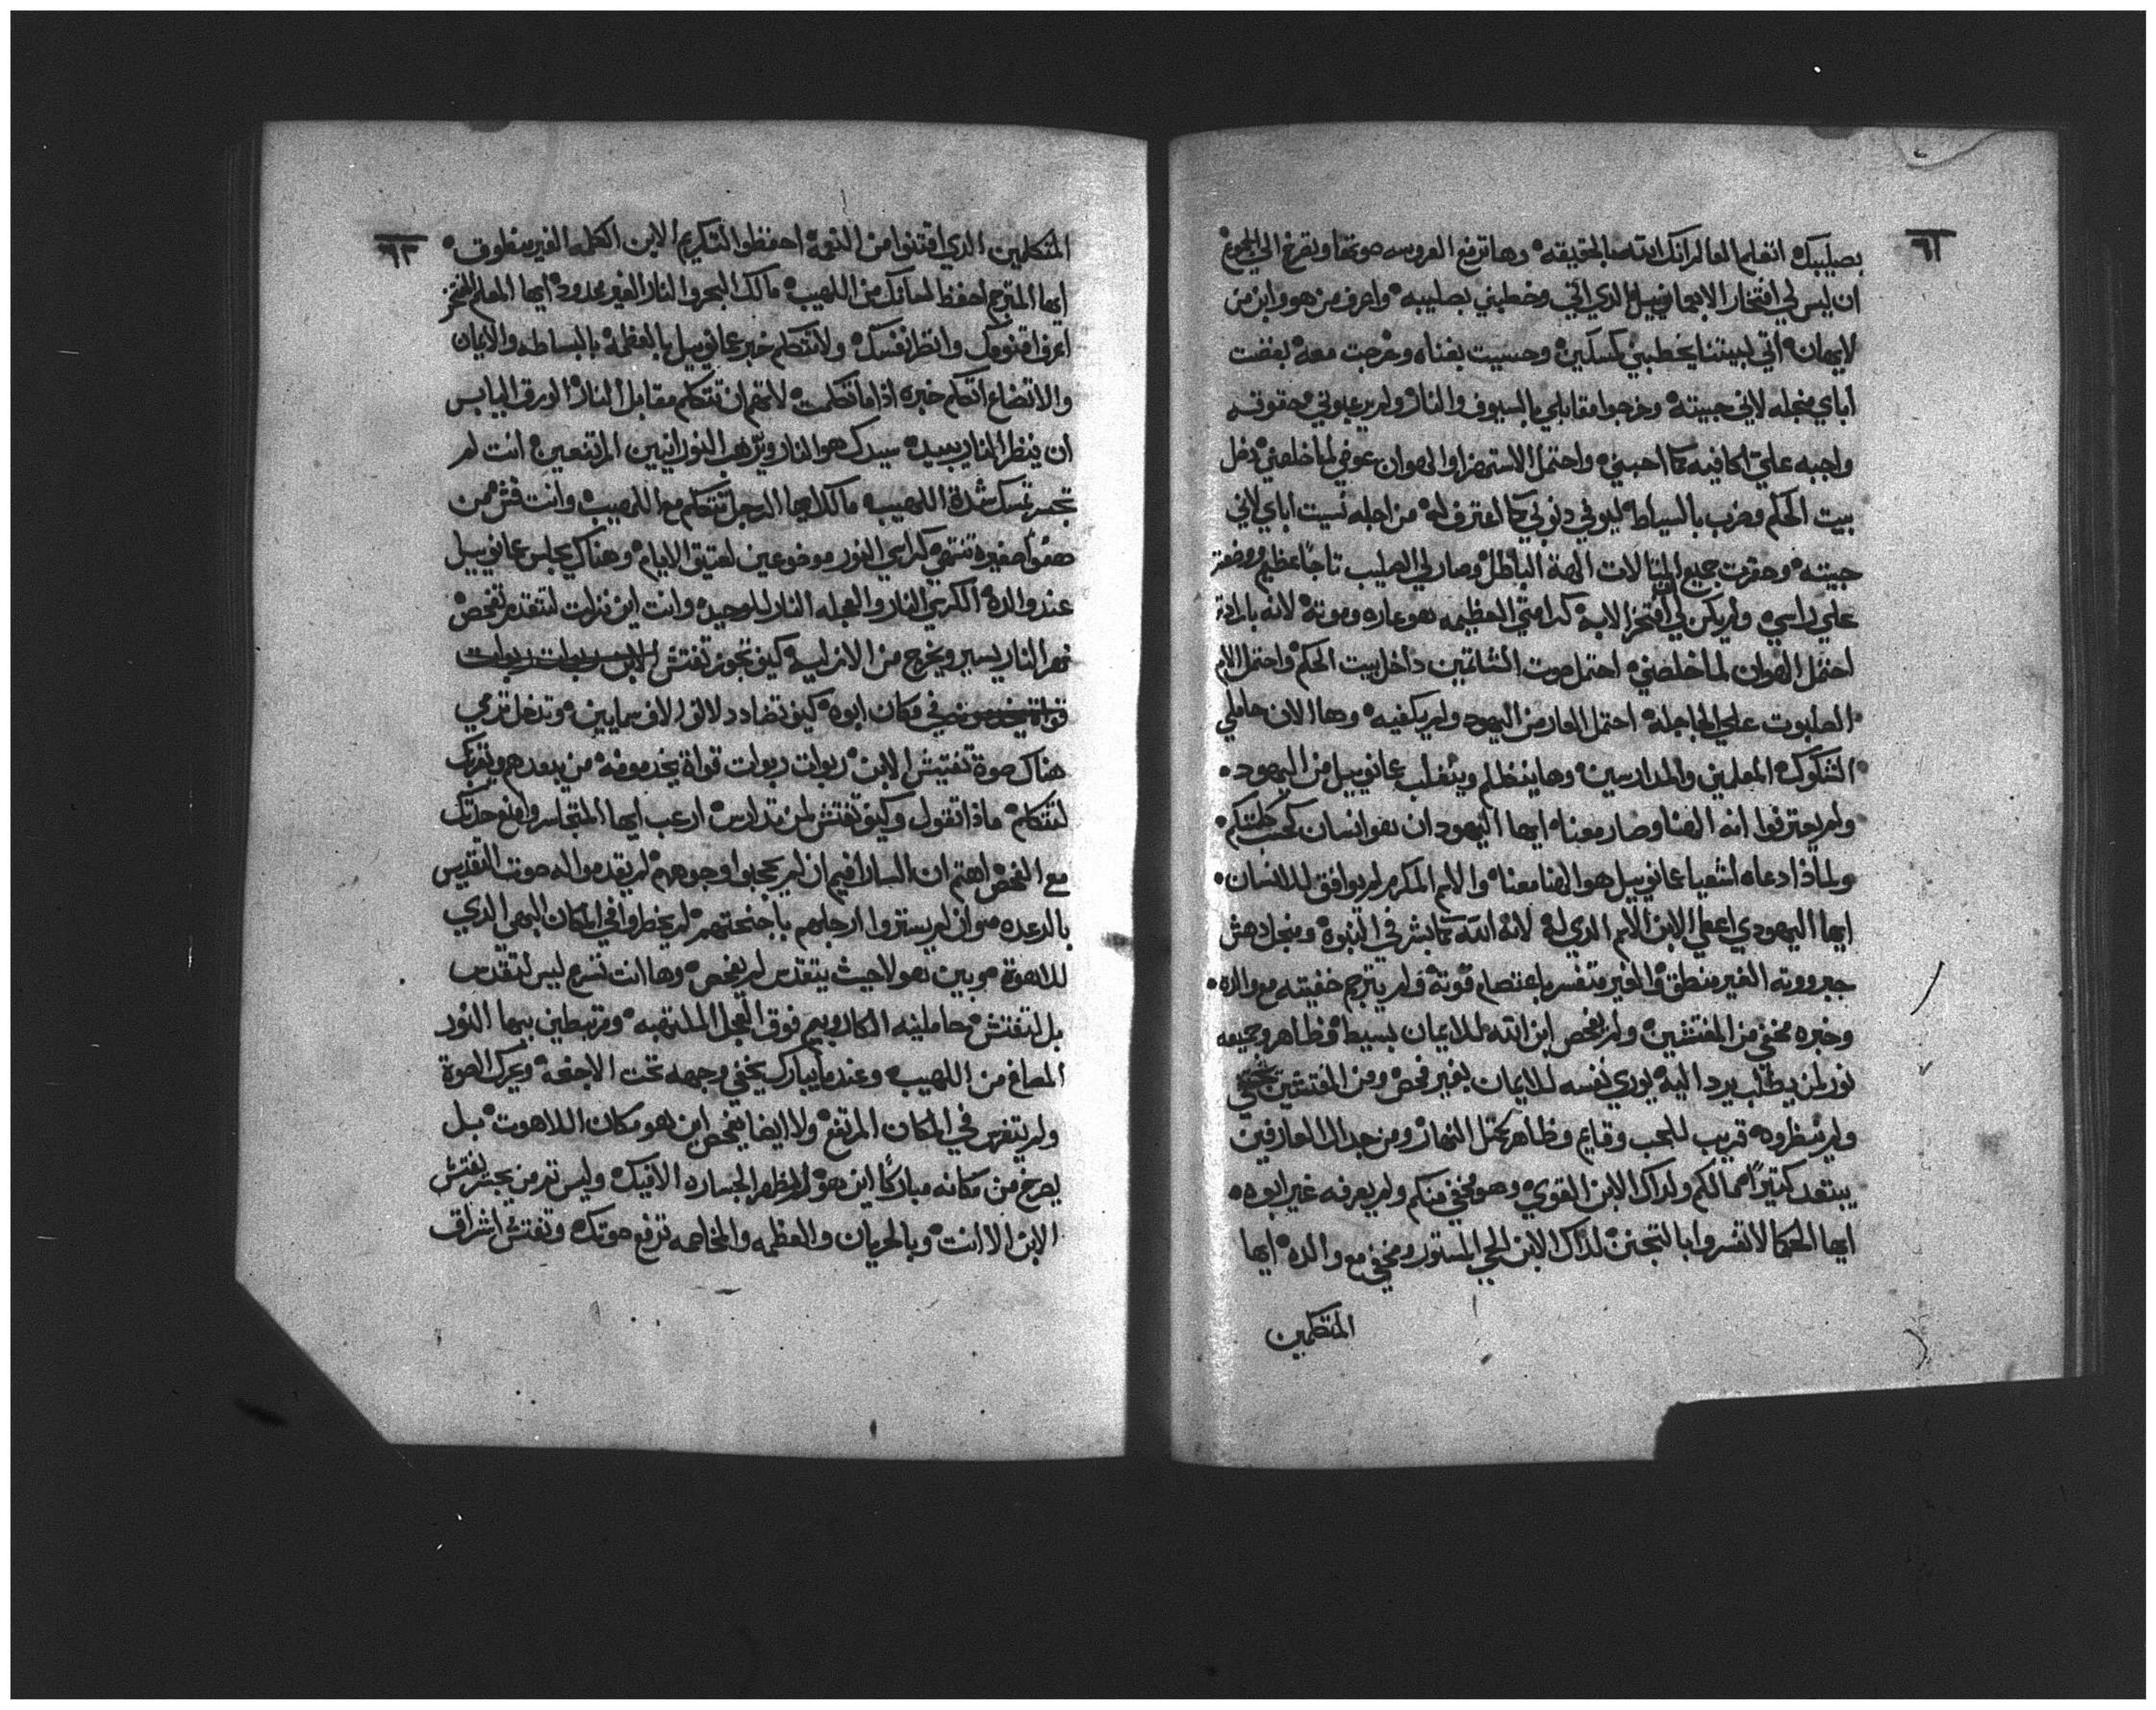 ٦٢
بصليبك اتعلم العالم انك الله بالحقيقه وها ترفع العروسه صوتها وتصرخ الي الجموع
ان ليس لي افتخار الا بعمانوييل الذي اتي وخطبني بصليبه واعرف من هو وابن من
لايمانه اتي لبيتنا يخطبني كمسكين وحسيت بغناه وخرجت معه بغضت
اباي منجله لاني حبيته وخرجوا مقابلي بالسيوف والنار ولم يرعبوني محقوقته
واجبه علي الكافيه كما احبني واحتمل الاستهزا والهوان عوضي لما خلصني دخل
بيت الحكم وضرب بالسياط ليوفي دنوبي كما اعترف له من اجله نسيت اباي لاني
حبيته وحقرت جميع التمالات الهة الباطل وصار لي الصليب تاجا عظيم ووضعته
علي راسي ولم يكن لي افتخر الا به كرامتي العظيمه هو عاره وموته لانه بارادته
احتمل الهوان لما خلصني احتمل صوت الشاتمين داخل بيت الحكم واحتمل الالم
الصلبوت علي الجاجلة احتمل العار من اليهود ولم يكفيه وها الان حاملي
الشكوك المعلمين والمدارسين وها ينظلم ويتغلب عمانوييل من اليهود
ولم يعترفوا انه الهنا وصار معنا ايها اليهود ان هو انسان كحسب كلمتكم
ولماذا دعاه اشعيا عمانوييل هو الهنا معنا والاسم المكرم لم يوافق للانسان
ايها اليهودي اعطي الابن الاسم الذي له لانه الله كما بشر في النبوة ومنجل دهش
جبرووته الغير منطق والغير متفسر باعتصام قوته ولم يترجم خفيته مع والده
وخبره مخفي من المفتشين ولم يفحص ابن الله للايمان بسيط وظاهر وجميعه
نور لمن يطلب يرد اليه يوري نفسه للايمان بغير فحص ومن المفتشين يختفي
ولم ينظروه قريب للحب وقايم وظاهر كمتل النهار ومن جدال العارفين
يبتعد كتيرا ممالكم ولدراك الابن القوي وهو مخفي منكم ولم يعرفه غير ابوه
ايها الحكما لاتفسروا بالتجنن لدراك الابن الحي المستور ومخفي مع والده ايها
المتكلمين
٦٣
المتكلمين الذي اقتنوا من النعمة احفظوا التكريم الابن الكلمه الغير منطوق
ايها المترجم احفظ لسانك من اللهيب مالك البحر والنار الغير محدود ايها المعلم المفتخر
اعرف اقنومك وانظر نفسك ولا تتكلم خبر عمانوييل بالعظمة بالبساطه والايمان
والاتضاع اتكلم خبره اذا ما تكلمت لا تهتم ان تتكلم مقابل النار الورق اليابس
ان ينظر النار يبيده سيدك هو النار ويرهب النورانيين المرتفعين انت لم
تجسر تمسك شدة اللهيب مالك ايها الرجل تتكلم مع اللهيب وانت قش ممن
هفوا صغيره تنتهي كراسي النور موضوعين لعتيق الايام وهناك يجلس عمانوييل
عند والده الكرسي النار والعجله النار للوحيد وانت اين نزلت لتتقدم تفحص
نهر النار يسير ويخرج من الازليه كيف تجوز تفتش الابن ربوات ربوات
قواة يخدمونه في مكان ابوه كيف تضادد لالوف الاف سمايين وتدخل ترمي
هناك صوة تفتيش الابن ربوات ربوات قواة يخدمونه من بعدهم ويقربك
لتتكلم ماذا تقول وكيف تفتش لمن تدارس ارعب ايها المتجاسر وامنع حدتك
مع الفحص افهم ان السارافيم ان لم يحجبوا وجوههم لم يقدموا له صوت التقديس
بالرعده هو ان لم يستروا ارجلهم باجنحتهم لم يخطروا في المكان البهي الذي
للاهوة موبين هولا حيث يتقدس لم يفحص وها انت تسرع ليس لتقدس
بل لتفتش حاملينه الكاروبيم فوق العجل الملتهبه ومرتبطين بيها النور
المصاغ من اللهيب وعندما يبارك يخفي وجهه تحت الاجنحه ويحرك الصوة
ولم يتفرس في المكان المرتفع ولا ايضا يفحص اين هو مكان اللاهوت بل
يصرخ من مكانه مباركا اين هو لم يظهر الجساره الا فيك وليس تم من يجسر يفتش
الابن الا انت وبالحريان والعظمه والمخاصمه ترفع صوتك وتفتش اشراق